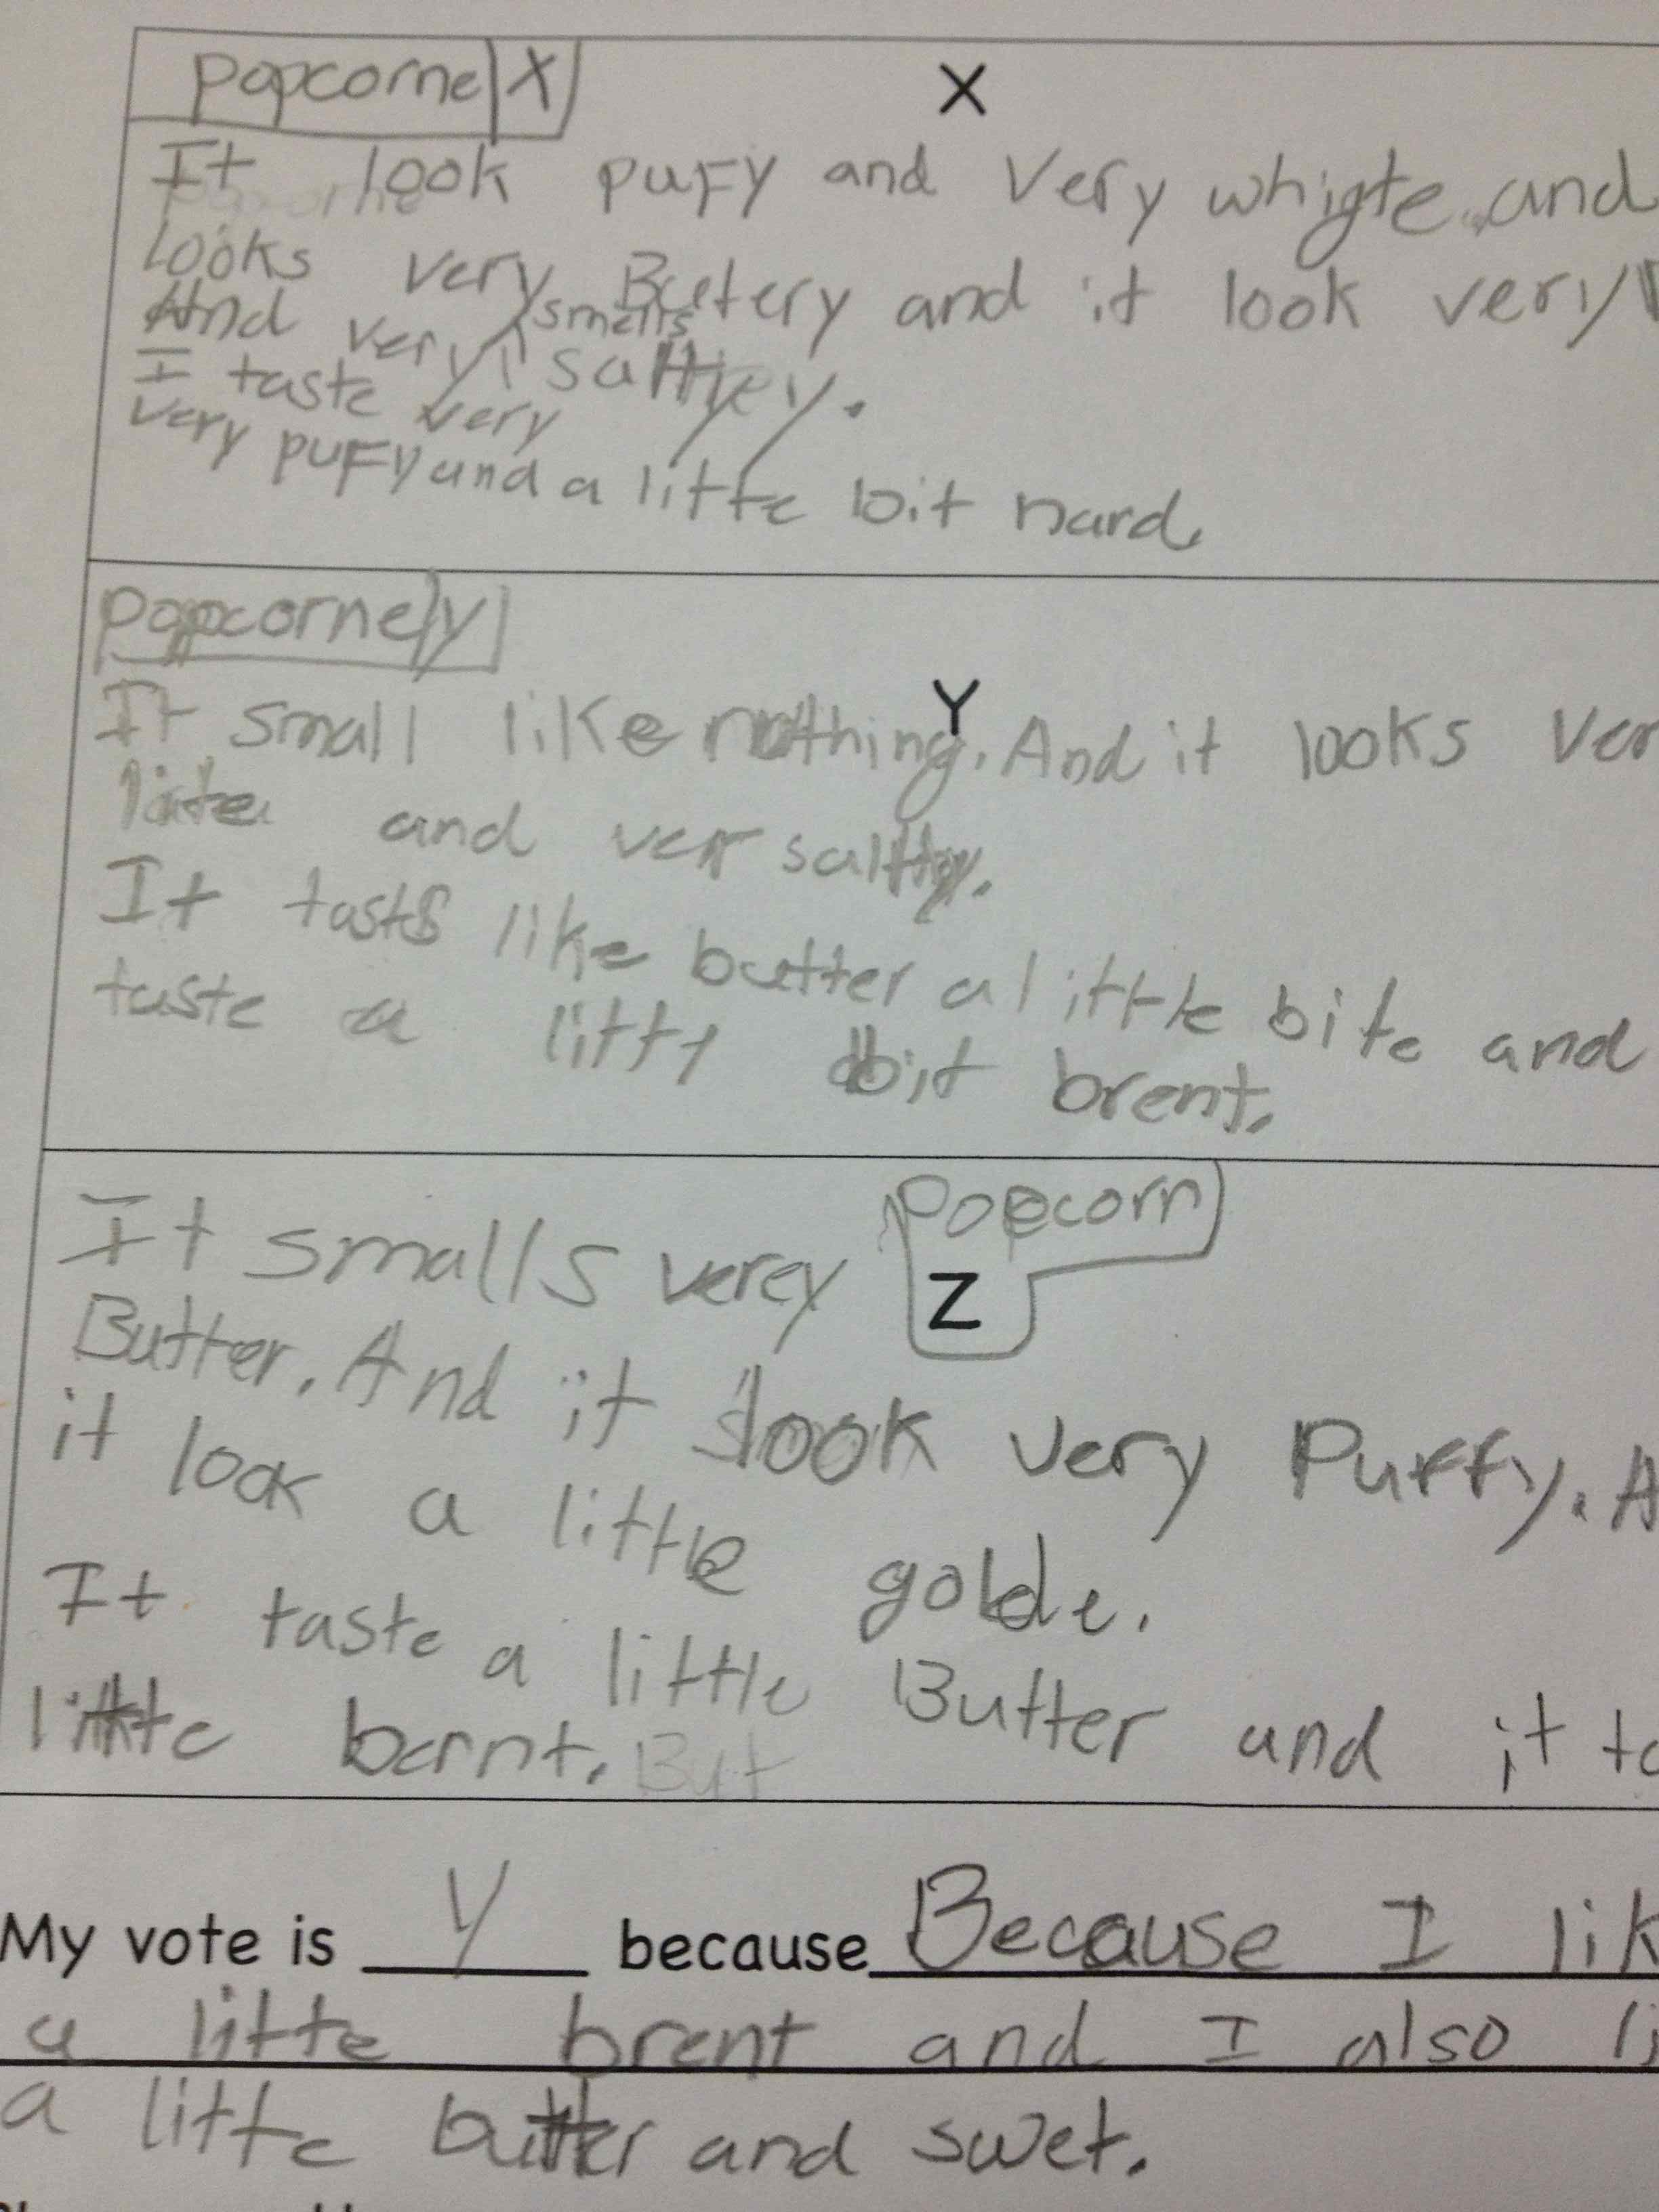 popcorne X
X
It look pufy and very whigte and
looks very Buttery and it look very
And very smells saltyey.
I taste very
very pufy and a litte bit hard.
popcorne y
Y
It small like nothing. And it looks ver
lite and ver salty.
It tasts like butter a little bite and
taste a litty bit brent.
Popcorn
Z
It smalls verey
Butter. And it look very Puffy. A
it look a little golde.
It taste a little Butter and it ta
litte bernt. But
My vote is Y because Because I lik
a litte brent and I also li
a litte butter and swet.